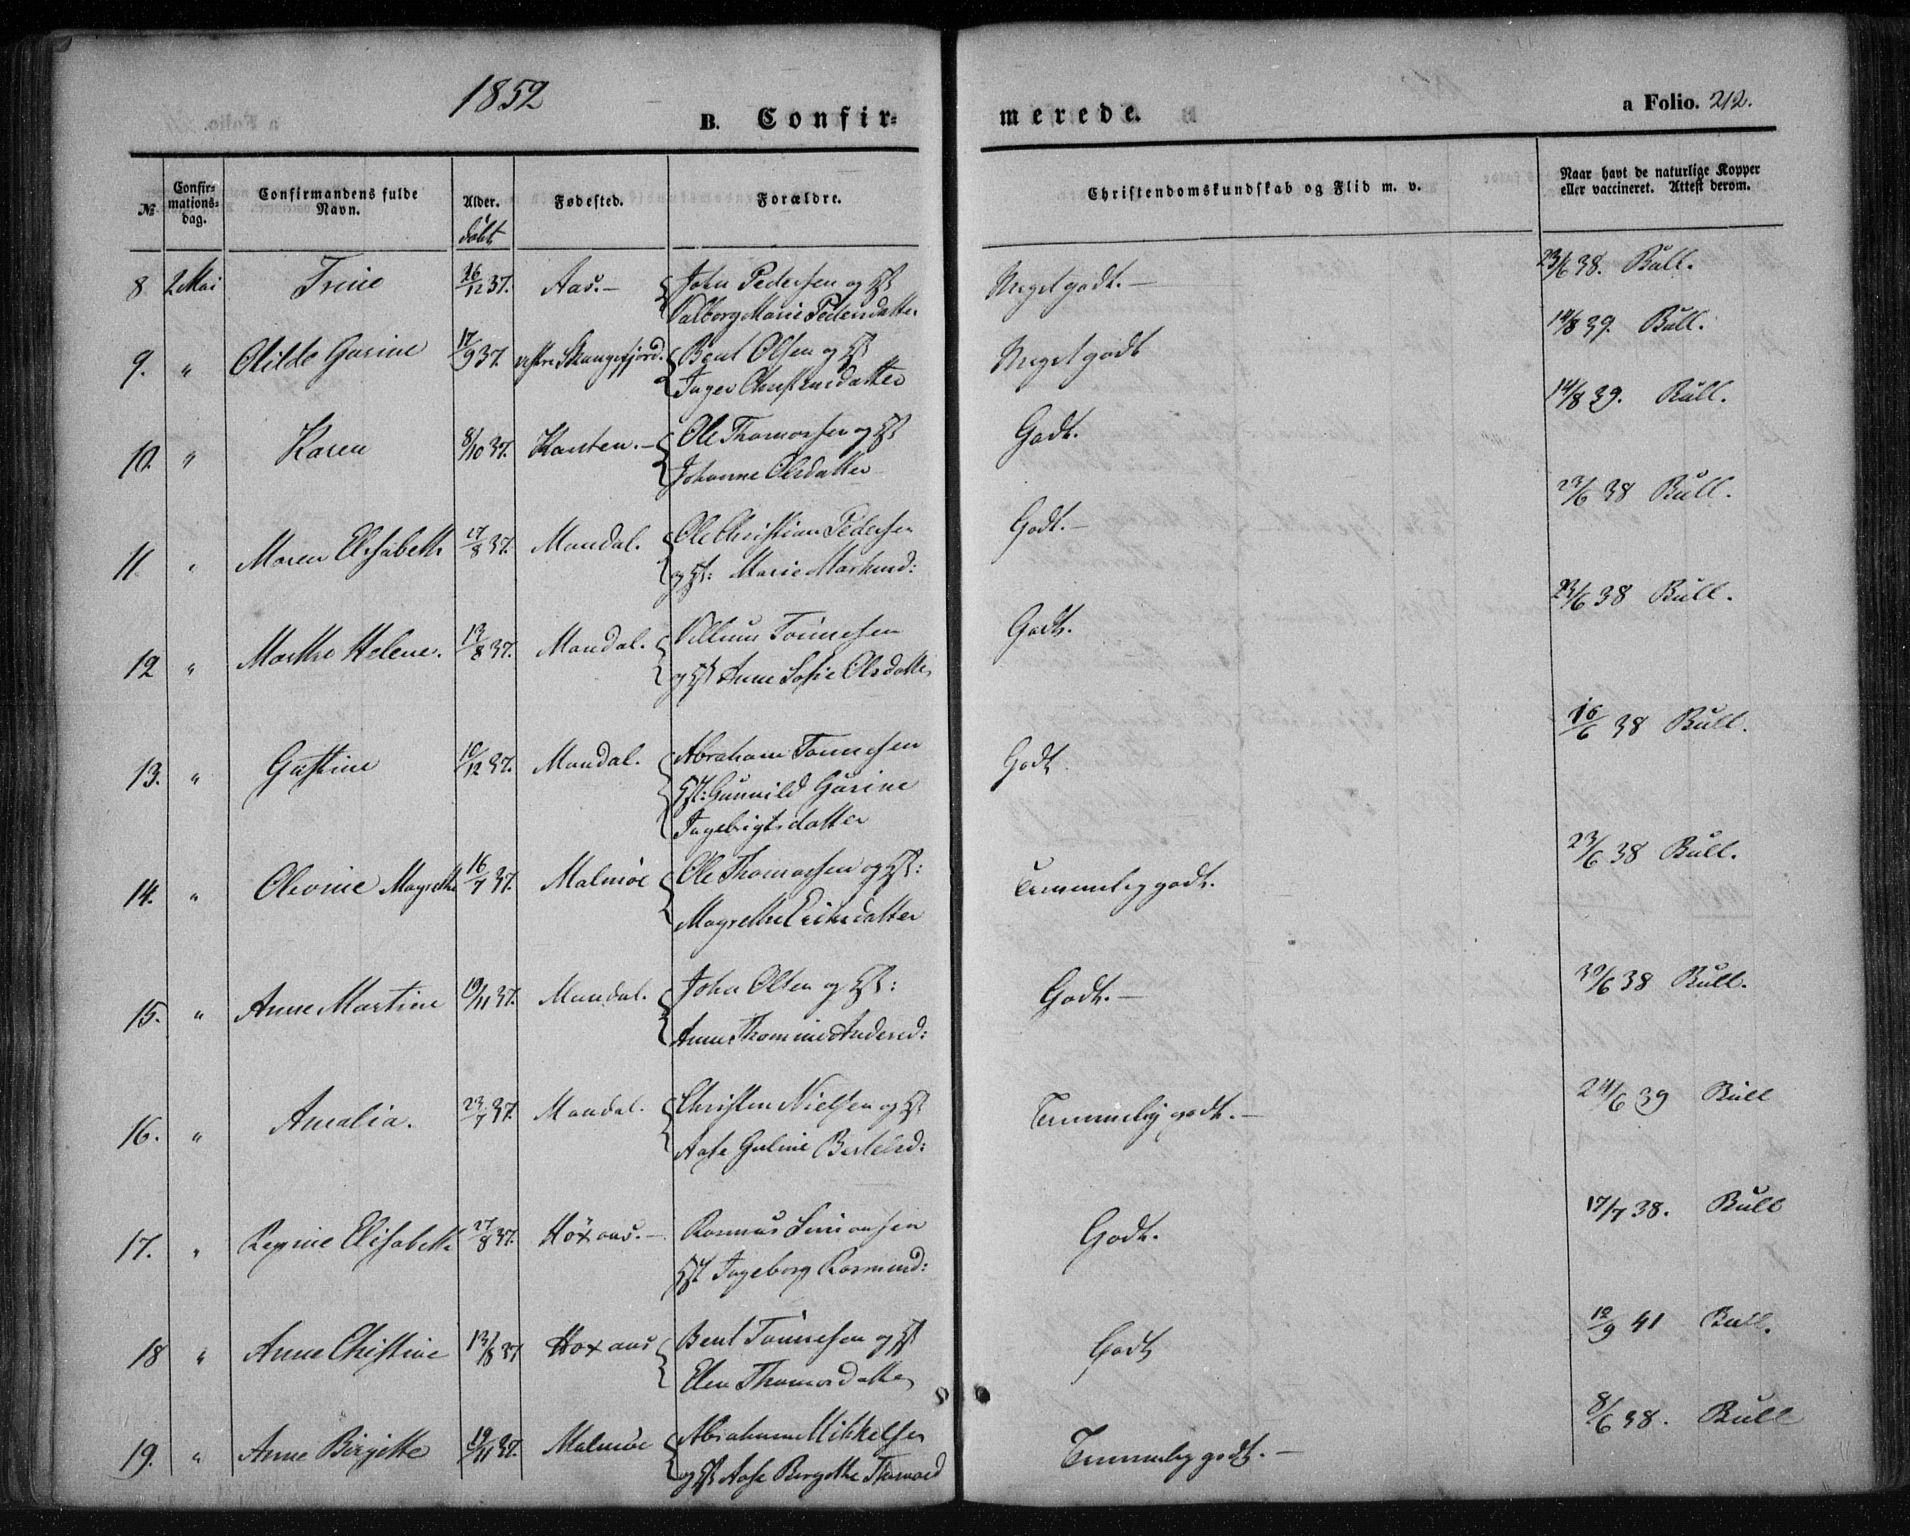 1852
B. Confir-
merede.
a Folio. 212.
№
Confir-
mations-
dag.
Confirmandens fulde
Navn.
Alder.
døbt
Fødested.
Forældre.
Christendomskundskab og Flid m. v.
Naar havt de naturlige Kopper
eller vaccineret. Attest derom.
8 2 Mai Trine 26/12 37. Aas.- John Pedersen og Hst Meget godt.- 23/6 38. Bull.
Valborg Marie Pedersdatter
9. " Olilde Gurine 17/9 37. vestre Skougsfjord. Bent Olsen og Hst Meget godt 14/8 39. Bull.
Inger Christensdatter
10. " Karen 8/10 37. Ole Thomassen og Hst Godt. 14/8 39. Bull.
Johanne Olsdatter
11. " Maren Elisabeth 27/8 37. Mandal. Ole Christian Pedersen Godt.- 23/6 38 Bull.
og Hst: Marie
12 " Marthe Helene. 13/8 37. Mandal. Villum Tønnesen Godt. 23/6 38 Bull.
og Hst Anne Sofie Olsdatter
13. " Gustine 10/12 37. Mandal. Abraham Tønnesen Godt. 16/6 38 Bull.
Hst: Gunvild Gurine
Ingebrigtsdatter
14. " Olevine Magrethe 16/7 37. Malmøe Ole Thomassen og Hst: Temmelig godt. 23/6 38 Bull.
Magrethe Eriksdatter
15. " Anne Martine 19/11 37. Mandal. John Olsen og Hst: Godt.- 30/6 38 Bull.
Anne Thomine Andersd:
16. " Amalia. 23/7 37. Mandal. Christen Nielsen og Hst Temmelig godt.- 24/6 39 Bull
Aase Guline Bertelsd:
17. " Regine Elisabeth 27/8 37. Høxaas.- Rasmus Simonsen Godt. 17/7 38. Bull
Hst Ingeborg Rasmusd:
18 " Anne Christine 13/8 37 Høxaas Bent Tønnesen og Hst Godt 12/9 41 Bull.
Elen Thomasdatter
19. " Anne Birgitte 19/11 37. Malmøe Abraham Mikkelsen Temmelig godt.- 8/6 38. Bull
og Hst Aase Birgitte Thomasd